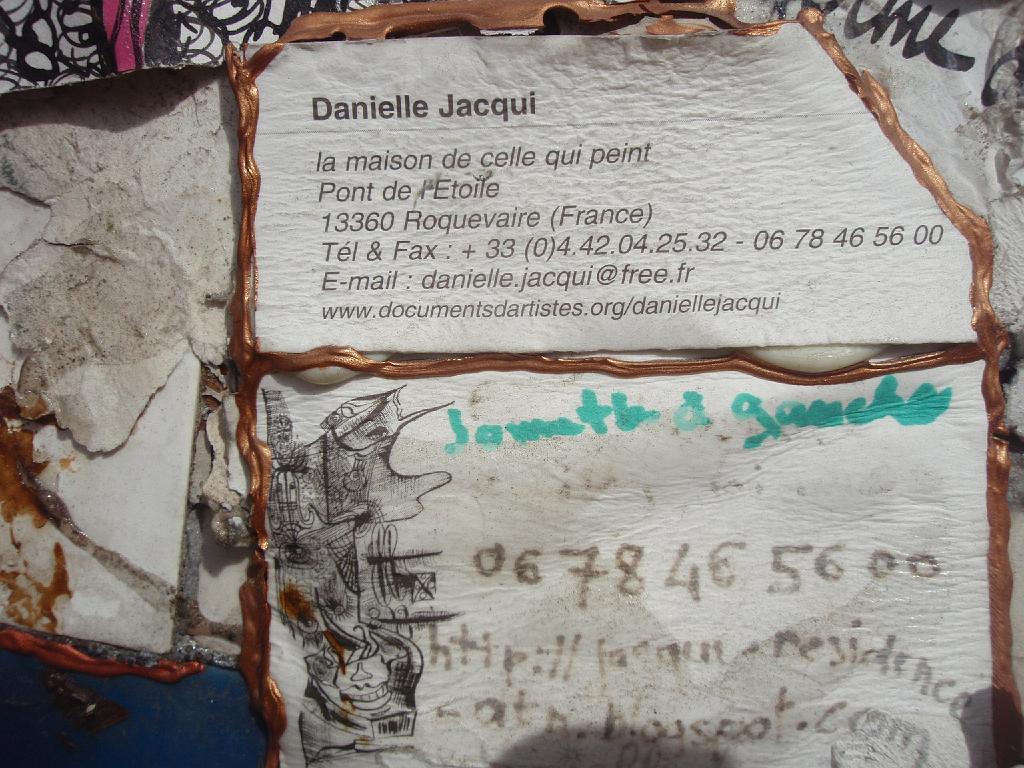 Danielle Jacqui
la maison de celle qui peint
Pont de l'Etoile
13360 Roquevaire (France)
Tél & Fax : + 33 (0)4.42.04.25.32 - 06 78 46 56 00
E-mail : danielle.jacqui@free.fr
www.documentsdartistes.org/daniellejacqui
à gauche
06 78 46 56 00
http://jacqui-residence
.blogspot.com